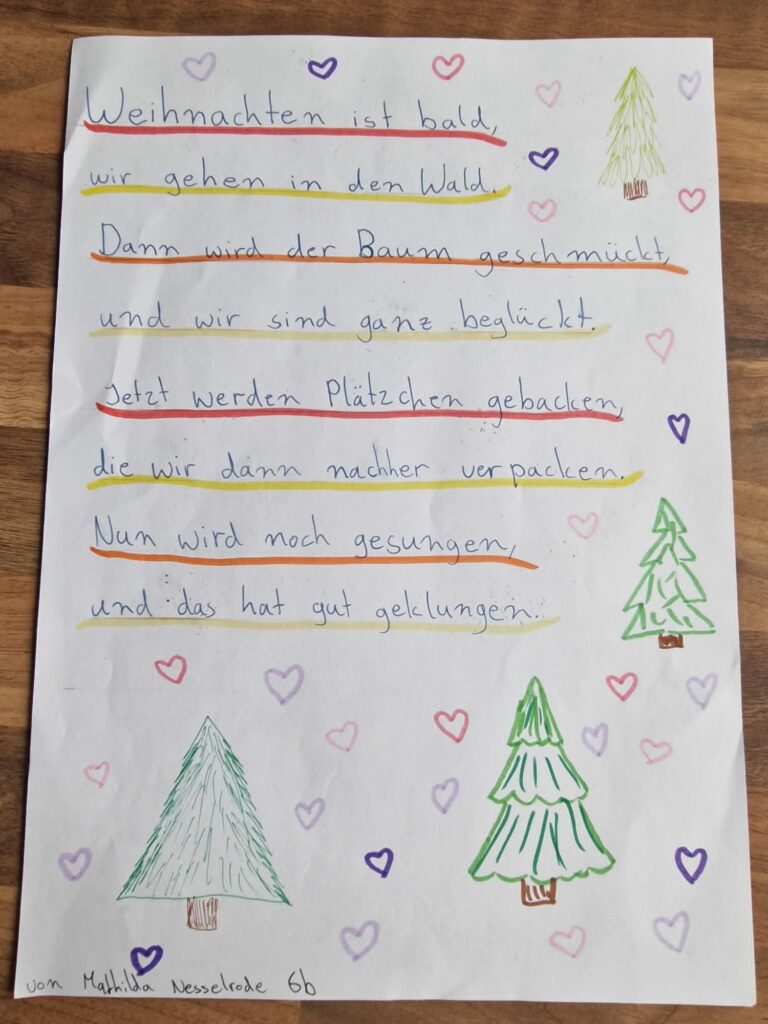 Weihnachten ist bald,
wir gehen in den Wald.
Dann wird der Baum geschmückt,
und wir sind ganz beglückt.
Jetzt werden Plätzchen gebacken,
die wir dann nachher verpacken.
Nun wird noch gesungen,
und das hat gut geklungen.
von Mathilda Nesselrode 6b